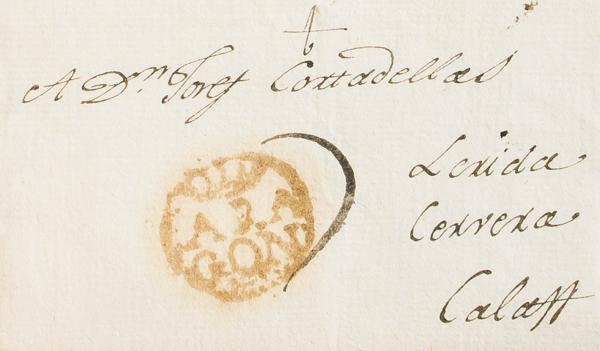 A Dn Josef Cortadellas
Lerida
Cervera
Calaff
ARA
GON